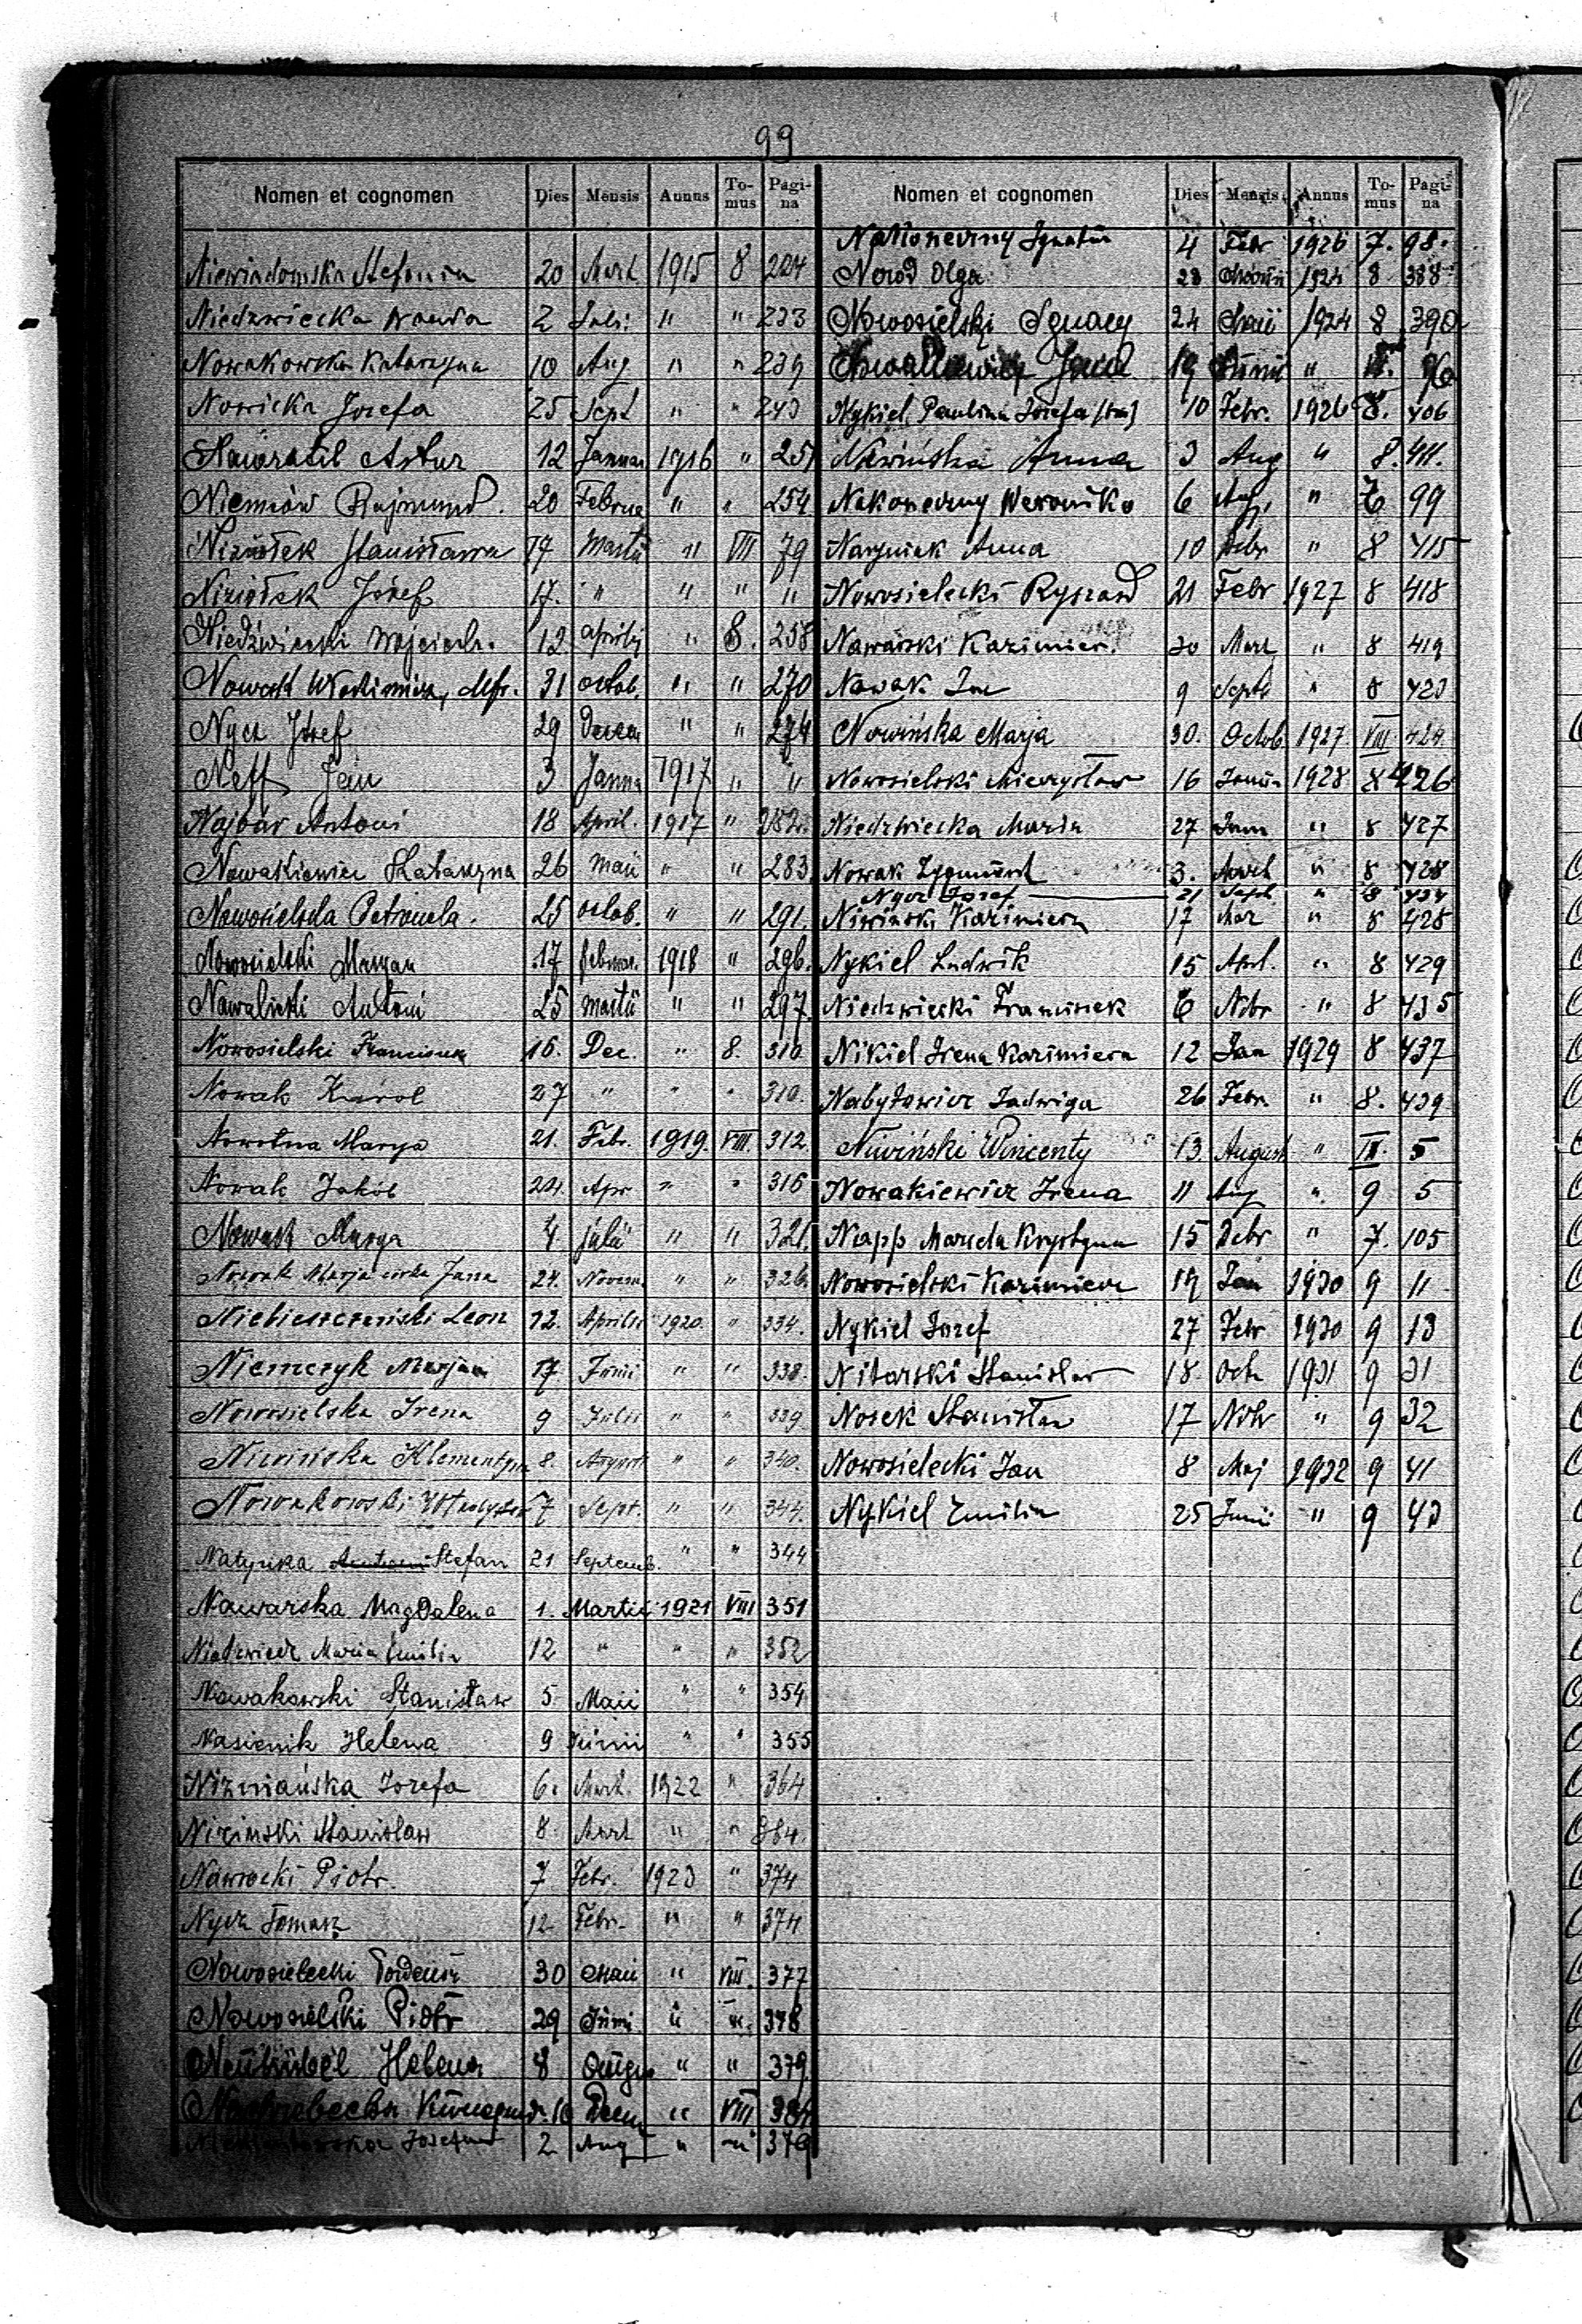 99
Nomen et cognomen Dies Mensis Annus To-mus Pagi-na
Niewiadomska Stefania 20 Mart 1915 8 224
Niedzwiecka Wanda 2 Julii " " 233
Nowakowska Katarzyna 10 Aug " " 239
Nowicka Jozefa 25 Sept " " 243
Nawratil Artur 12 Januar 1916 " 251
Niemców Rajmund. 20 Februa " " 254
Niziołek Stanisława 17 Martii " VIII 79
Niziołek Józef 17. " " " "
Niedźwiecki Wojciech. 12 aprilis " 8. 258
Nowak Włodzimierz, Alfr. 31 octob. " " 270
Nycz Józef 29 Decem " " 274
Neff Jan 3 Janua 1917 " "
Najbar Antoni 18 April. 1917 " 282.
Nowakiewicz Katarzyna 26 Maii " " 283
Nowosielska Petronela. 25 octob. " " 291.
Nowosielski Maryan 17 februar. 1918 " 296.
Nawalnicki Antoni 25 martii " " 297.
Nowosielski Franciszek 16. Dec. " 8. 310.
Nowak Karol 27 " " " 310.
Nowotna Marya 21. Febr. 1919. VIII. 312
Nowak Jakób 24. Apr " " 316
Nowak Marya 4 julii " " 321.
Nowak Marja córka Jana 24. Novem. " " 326.
Niebieszczański Leon 12. Aprilis 1920. " 334.
Niemczyk Marjan 17. Junii " " 338.
Nowosielska Irena 9 Julii " " 339.
Niwińska Klementyna 8. Augusti " " 340.
Nowakowski Władysław 7 Sept. " " " 344.
Natyuka Stefan 21 Septemb. " " 344
Nawarska Magdalena 1. Martii 1921 VIII 351
Niedzwiedz Maria Emilia 12 " " " 352
Nowakowski Stanisław 5 Maii " " 354
Nasienik Helena 9 Junii " " 355
Nizniańska Jozefa 6. Mart. 1922 " 364
Nizinski Stanislaw 8. Mart " " 364.
Nawrocki Piotr. 7 Febr. 1923 " 374
Nycz Tomasz 12 Febr. " " 374
Nowosielecki 30 Maii " VIII. 377
Nowosielski Piotr 29 Junii " " 378
Neubübel Helena 8 Augus " " 379
Kunegund. Decem " VIII
2 Aug " " 379
Nomen et cognomen Dies Mensis Annus To-mus Pagi-na
Nakoneczny Ignatius 4 Febr 1926 7. 98.
Norod Olga 28 1924 8 388
Nowosielski Ignacy 24 Maii 1924 8 390
19 Junii " 96
Nykiel Paulina Jozefa 10 Febr. 1926 8. 406
Nawińska Anna 3 Aug " 8. 411.
Nakoneczny Weronika 6 Aug. " 7 99
Naryniak Anna 10 Debr " 8 415
Nowosielecki Ryszard 21 Febr 1927 8 418
Nawarski Kazimierz. 30 Mart " 8 419
Nowak Jan 9 Septb " 8 423
Nowińska Marja 30. Octob. 1927 VIII 424
Nowosielski Mieczysław 16 Januar 1928 8 426
Niedzwiecka Maria 27 Janu " 8 427
Nowak Zygmunt 3. Mart " 8 428
Nycz Jozef 21 Sept. " 8 434
Niwinski Kazimierz 17 Mar " 8 428
Nykiel Ludwik 15 Aprl. " 8 429
Niedzwiecki Franciszek 6 Nvbr " 8 435
Nikiel Irena Kazimiera 12 Jan 1929 8 437
Nabytowicz Jadwiga 26 Febr. " 8. 439
Niwiński Wincenty 13. August " IX. 5
Nowakiewicz Irena 11 Aug " 9 5
Napp Maria Krystyna 15 Debr " 7. 105
Nowosielski Kazimierz 19 Jan 1930 9 11
Nykiel Jozef 27 Febr 1930 9 13
Nitarski Stanislaw 18. Octb 1931 9 31
Nosek Stanisław 17 Nvbr " 9 32
Nowosielecki Jan 8 Maj 1932 9 41
Nykiel Emilia 25 Junii " 9 43